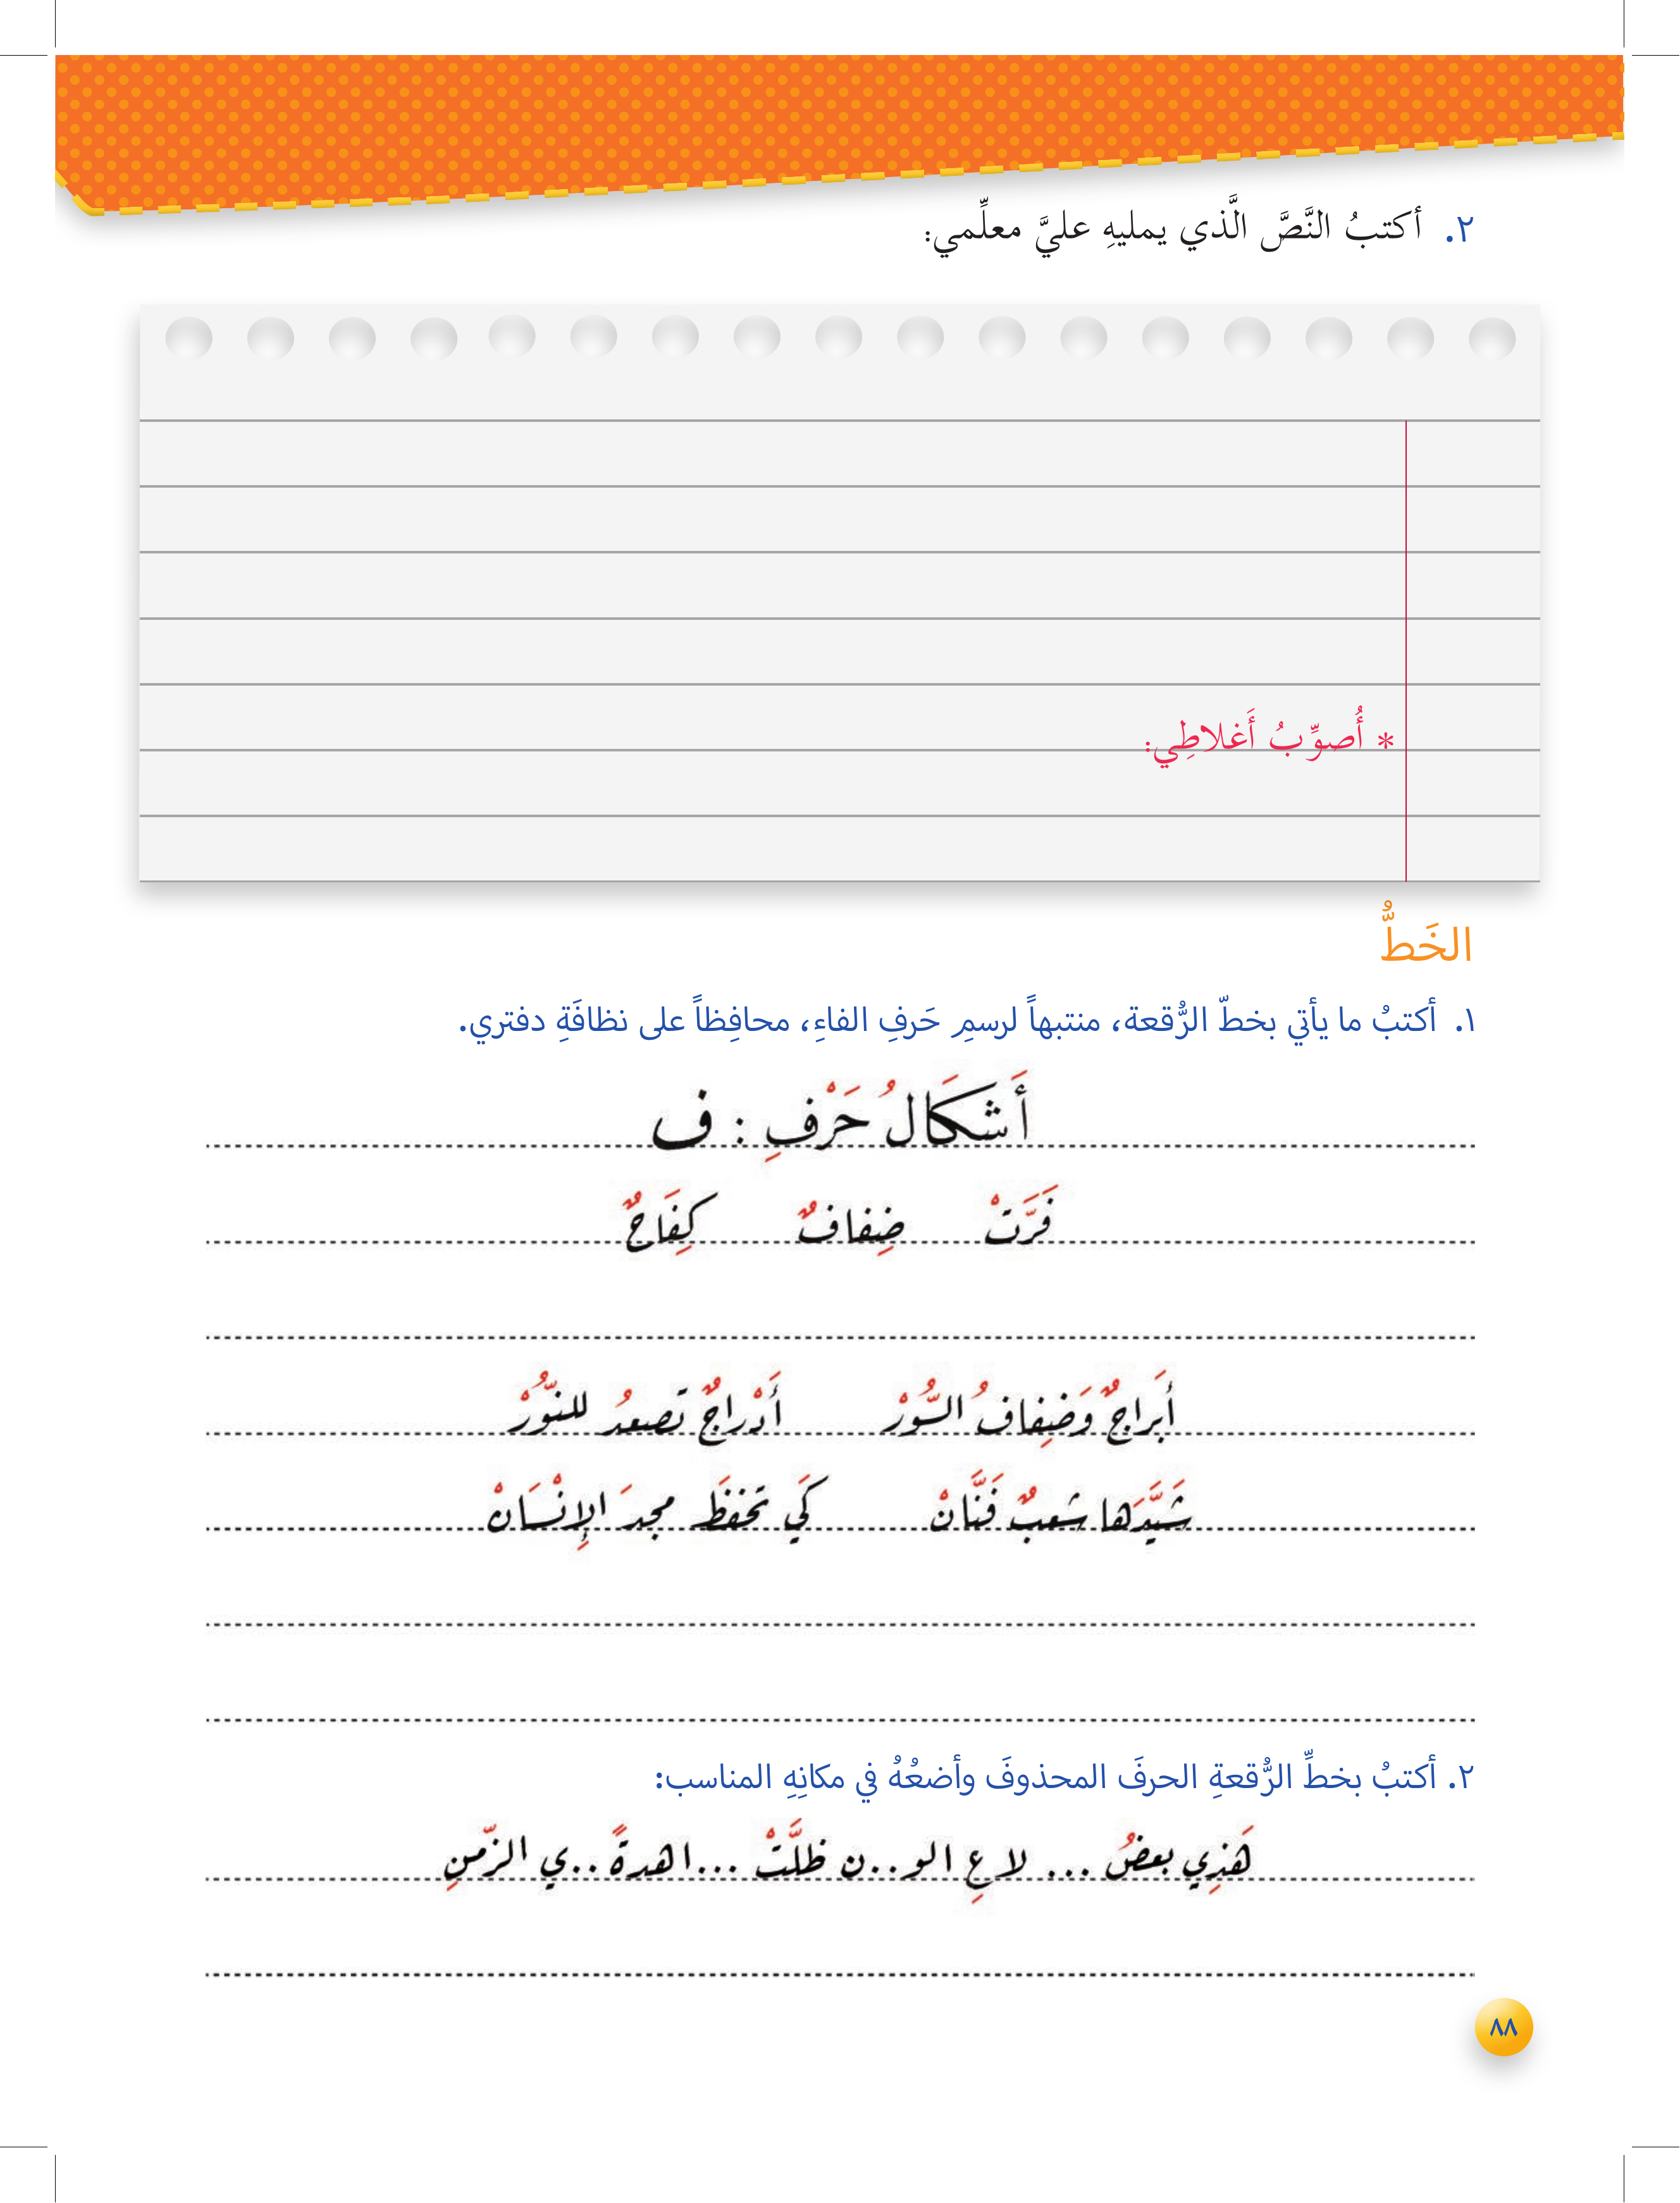 ٢. أكتبُ النَّصَّ الَّذي يمليهِ عليَّ معلِّمي:
* أُصوِّبُ أَغلاطِي:
الخَطُّ
١. أكتبُ ما يأتي بخطّ الرُّقعة، منتبهاً لرسمِ حَرفِ الفاءِ، محافِظاً على نظافَةِ دفتري.
أَشكَالُ حَرْفِ : ف
فَرَّتْ ضِفافٌ كِفَاحٌ
أَبراجٌ وَضِفافُ السُّورْ أَدْراجٌ تَصعدُ للنّورْ
شَيَّدَها شَعبٌ فَنَّانْ كَي تَحفظَ مجدَ الإِنْسَانْ
٢. أكتبُ بخطِّ الرُّقعةِ الحرفَ المحذوفَ وأضعُهُ في مكانِهِ المناسب:
هَذِي بعضُ ... لاعِ الو..ن ظلَّتْ ...اهدةً ..ي الزّمنِ
٨٨